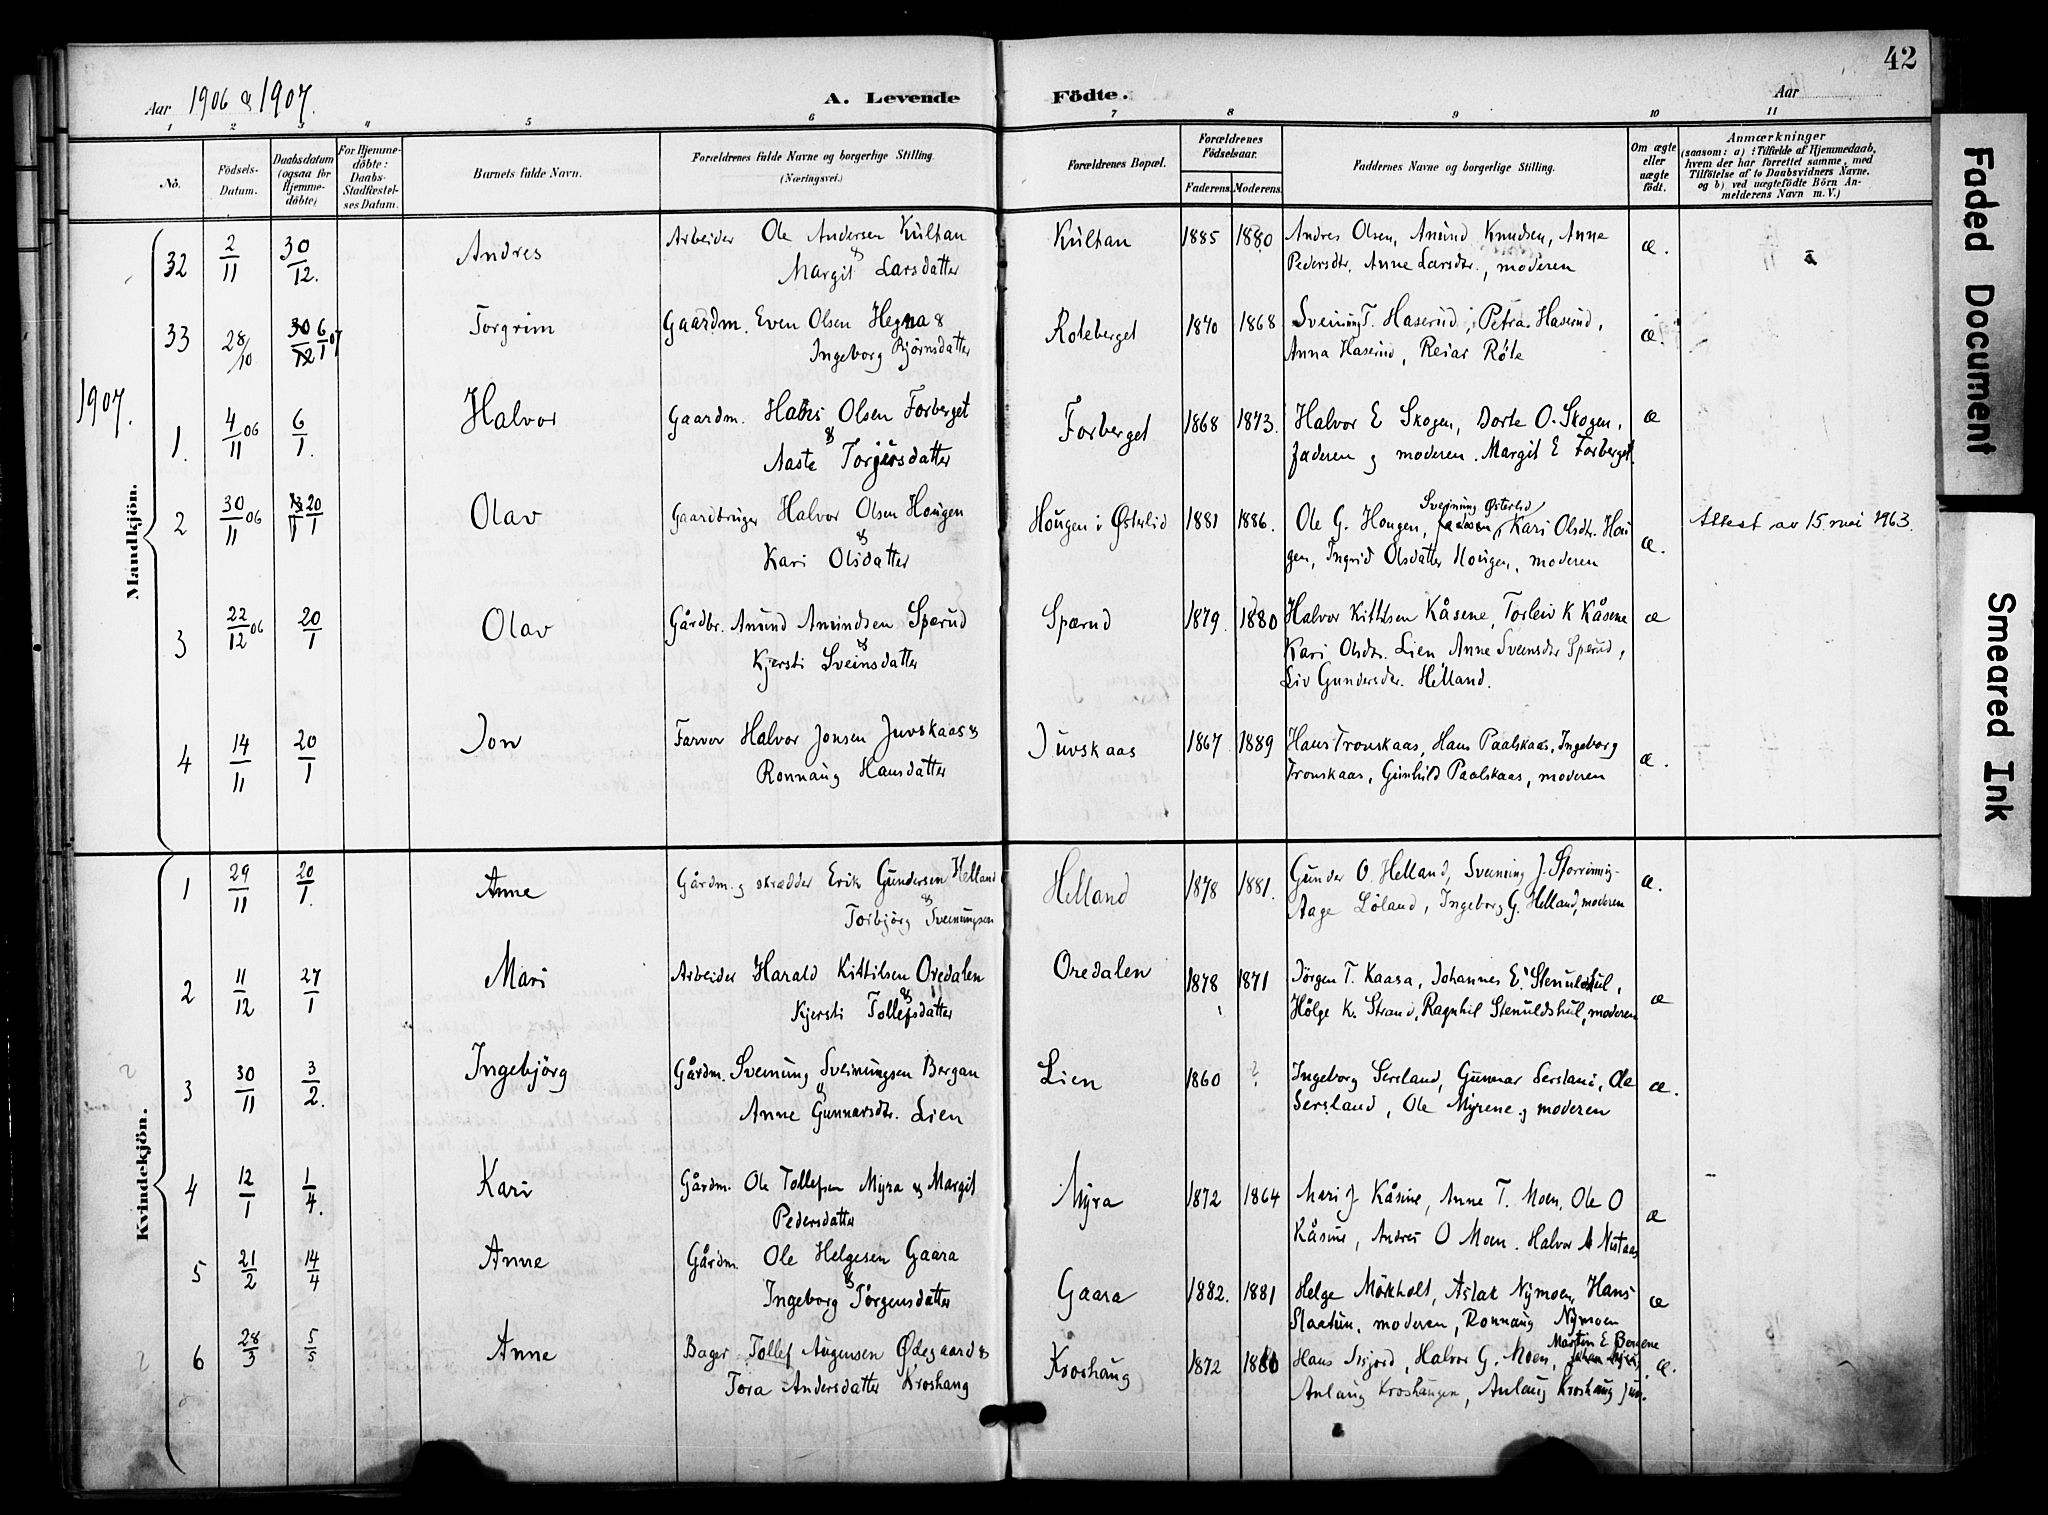 42
Aar 1906 & 1907.
A. Levende Födte.
Aar
1 2 3 4 5 6 7 8 9 10 11
No.
Födsels-Datum.
Daabsdatum (ogsaa for Hjemmedöbte)
For Hjemmedöbte: Daabs-Stadfæstelses Datum.
Barnets fulde Navn.
Forældrenes fulde Navne og borgerlige Stilling. (Næringsvei.)
Forældrenes Bopæl.
Forældrenes Födselsaar.
Faderens. Moderens.
Faddernes Navne og borgerlige Stilling.
Om ægte eller uægte födt.
Anmærkninger (saasom: a) i Tilfælde af Hjemmedaab, hvem der har forrettet samme, med Tilföielse af to Daabsvidners Navne, og b) ved uægtefödte Börn Anmelderens Navn m. V.)
Mandkjön.
32 2/11 30/12. Andres Arbeider Ole Andersen Kultan & Margit Larsdatter Kultan 1885 1880 Andres Olsen, Amund Knudsen, Anne
Pedersdtr. Anne Larsdtr., moderen æ.
33 28/10 30/12 6/1 07 Torgrim Gaardm. Even Olsen Hegna & Ingeborg Bjørnsdatter Roteberget 1840 1868 Sveinung T. Haserud, Petra Haserud,
Anna Haserud, Reiar Røte æ.
1907.
1. 4/11 06 6/1. Halvor Gaardm. Hans Olsen Forberget & Aaste Torjersdatter Forberget 1868 1873. Halvor E Skogen, Dorte O. Skogen,
faderen g moderen. Margit E Forberget. æ
2 30/11 06 20/1 Olav Gaardbruger Halvor Olsen Hougen & Kari Olsdatter Hougen i Østerlid 1881 1886. Sveinung Østerlid
Ole G. Hougen, Kari Olsdtr. Hou
gen, Ingrid Olsdatter Hougen, moderen æ. Attest av 15 mai 1963.
3 22/12 06 20/1 Olav Gårdbr. Amund Amundsen Spærud & Kjersti Sveinsdatter Spærud 1879. 1880 Halvor Kittilsen Kåsene, Torleiv K Kåsene
Kari Olsdtr. Lien Anne Sveinsdtr Spærud,
Liv Gundersdtr. Helland. æ
4 14/11 20/1 Jon Farver Halvor Jonsen Juvskaas & Ronnaug Hansdatter Juvskaas 1867 1889 Hans Tronskaas, Hans Paalskaas, Ingeborg
Tronskaas, Gunhild Paalskaas, moderen æ.
Kvindekjön.
1 29/11 20/1. Anne Gårdm. g skrædder Erik Gundersen Helland & Torbjörg Sveinungsen Helland 1878 1881. Gunder O. Helland, Sveinung J.
Aage Löland, Ingeborg G. Helland, moderen æ.
2 11/12 27/1 Mari Arbeider Harald Kittilsen Oredalen & Kjersti Tollefsdatter Oredalen 1878 1871 Jörgen T. Kaasa, Johannes E.
Hölge K. Strand, Ragnhil Stenuldshul, moderen æ
3 30/11 3/2. Ingebjörg Gårdm. Sveinung Sveinungsen Bergan & Anne Gunnarsdtr. Lien Lien 1860 ? Ingeborg Sersland, Gunnar Sersland, Ole
Sersland, Ole Myrene g moderen æ.
4 12/1 1/4. Kari Gårdm. Ole Tollefsen Myra & Margit Pedersdatter Myra 1872 1864 Mari J Kåsine, Anne T. Moen, Ole O
Kåsine, Andres O Moen. Halvor A Nistaas æ
5 21/2 14/4 Anne Gårdm. Ole Helgesen Gaara & Ingeborg Jörgensdatter Gaara 1882. 1881 Helge Mökholt, Aslak Nymoen, Hans
Slaatun, moderen, Ronnaug Nymoen æ
6 28/3 5/5 Anne Bager Tollef Augensen Ødegaard & Tora Andersdatter Kroshaug Kroshaug 1872 1880 Martin E Bergene
Hans Isjord, Halvor G. Moen,
Anlaug Kroshaugen, Anlaug Kroshaug jun. æ.
Faded Document
Smeared Ink